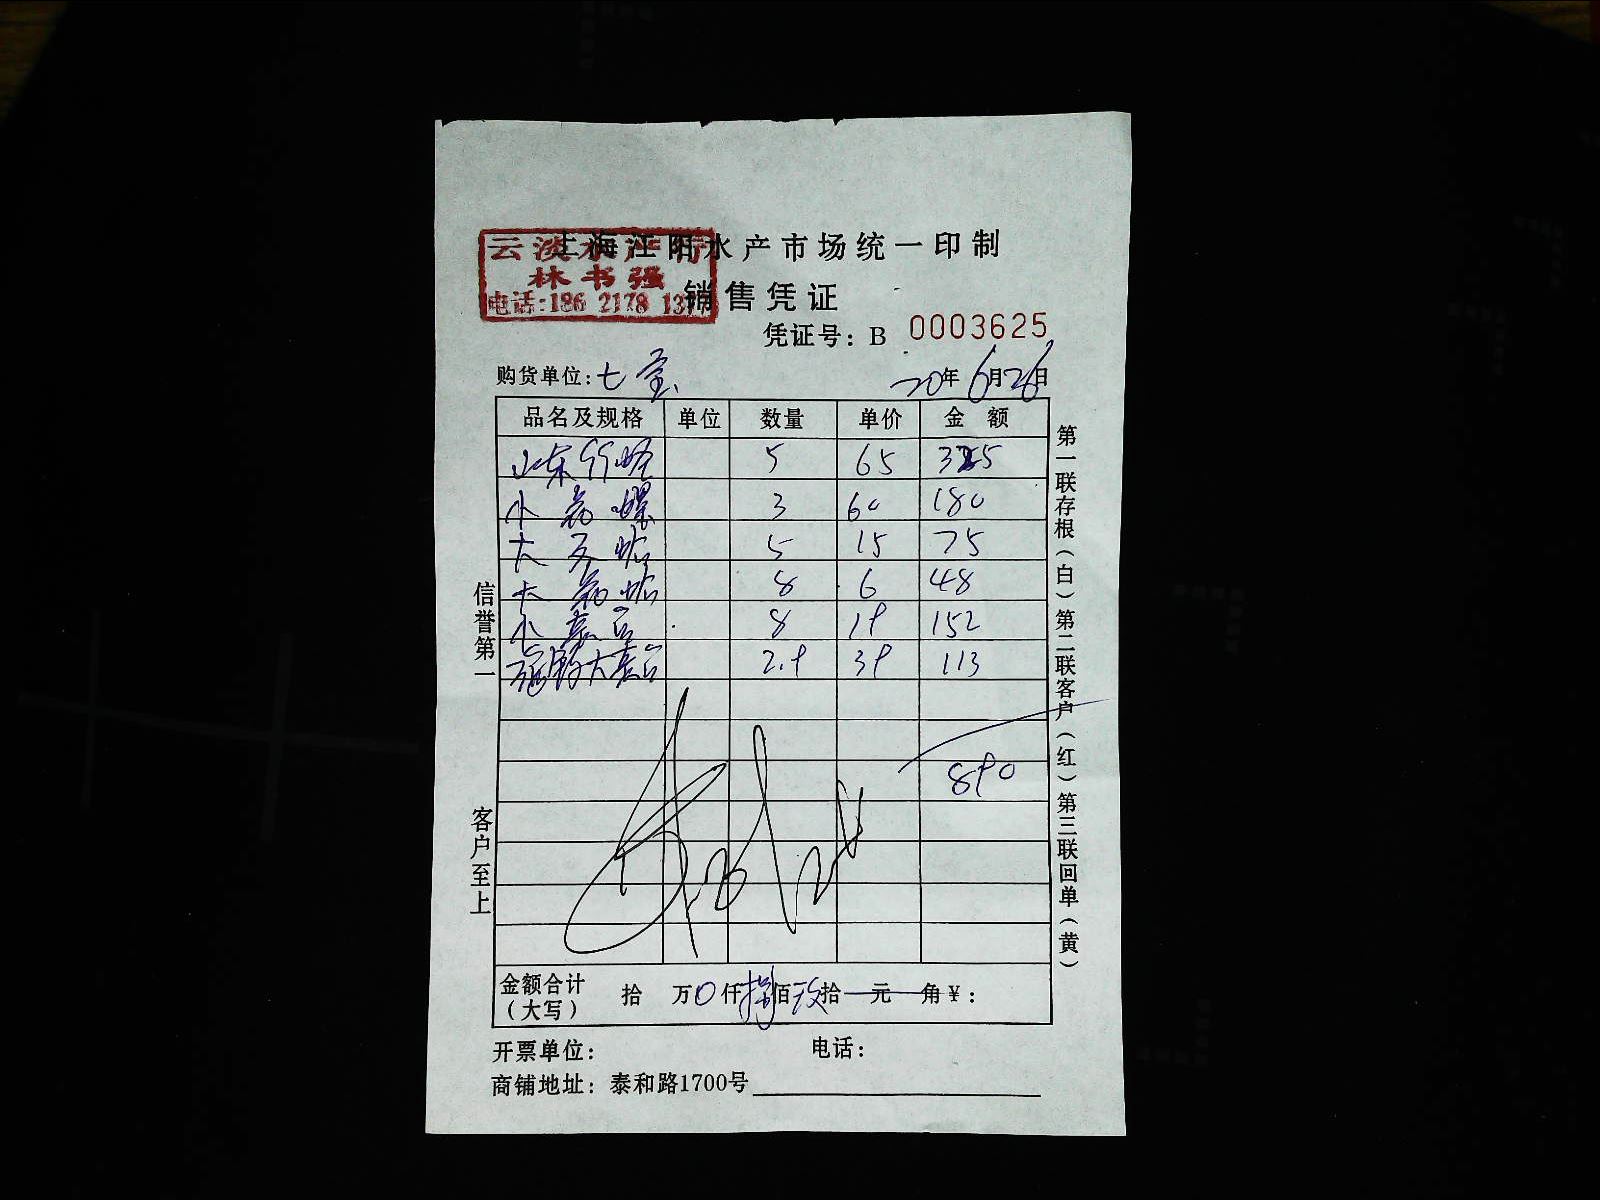 上海江阳水产市场统一印制
云淡水产行
林书强
电话:186 2178 13
销售凭证
凭证号: B 0003625
购货单位: 七宝
20年6月26日
品名及规格 单位 数量 单价 金 额
山东竹蛏 5 65 325
小 花 螺 3 60 180
大 文 蛤 5 15 75
大 花 蛤 8 6 48
小 元 贝 8 19 152
大元贝 2.9 39 113
890
金额合计(大写) 拾 万 0 仟 捌 佰 玖 拾 元 角 ¥:
开票单位: 电话:
商铺地址: 泰和路1700号
信誉第一 客户至上
第一联存根(白) 第二联客户(红) 第三联回单(黄)